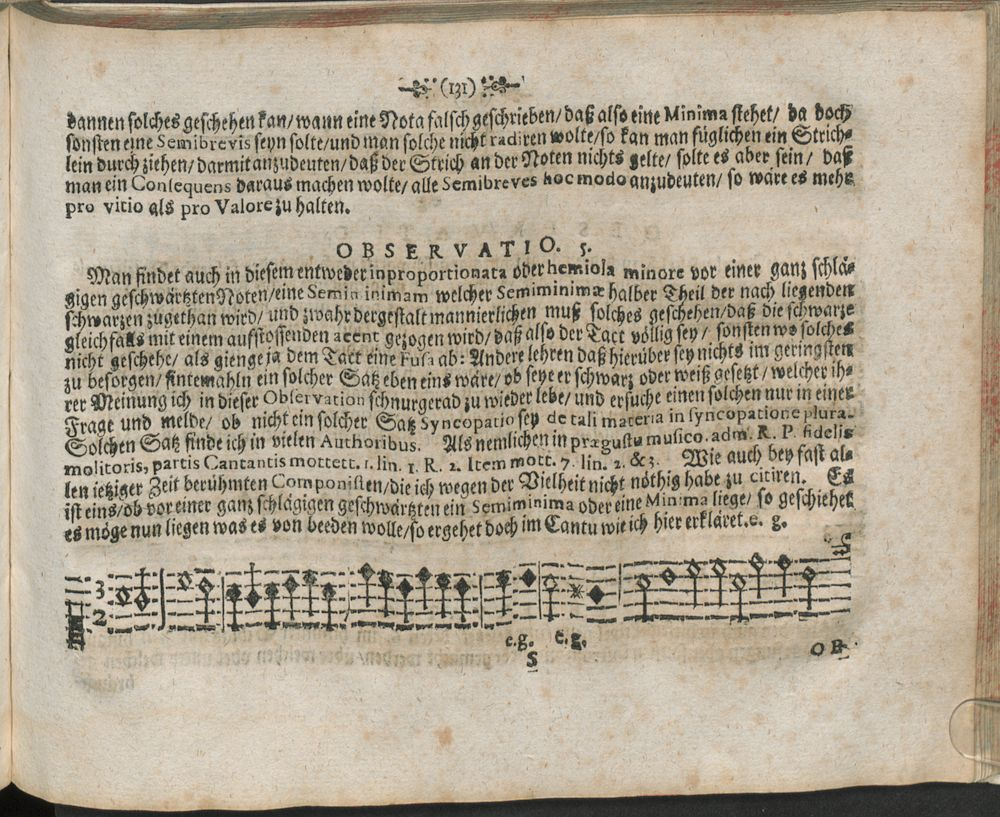 (131)
dannen solches geschehen kan/ wann eine Nota falsch geschrieben/ daß also eine Minima stehet/ da doch
sonsten eine Semibrevis seyn solte/ und man solche nicht radiren wolte/ so kan man füglichen ein Strich-
lein durch ziehen/ darmit anzudeuten/ daß der Strich an der Noten nichts gelte/ solte es aber sein/ daß
man ein Consequens daraus machen wolte/ alle Semibreves hoc modo anzudeuten/ so wäre es mehr
pro vitio als pro Valore zu halten.
OBSERVATIO. 5.
Man findet auch in diesem entweder in proportionata oder hemiola minore vor einer ganz schlä-
gigen geschwärtzten Noten/ eine Semiminimam welcher Semiminimæ halber Theil der nach liegenden
schwarzen zugethan wird/ und zwahr dergestalt mannierlichen muß solches geschehen/ daß die schwarze
gleichfalls mit einem aufstossenden acent gezogen wird/ daß also der Tact völlig sey/ sonsten wo solches
nicht geschehe/ als gienge ja dem Tact eine Fusa ab: Andere lehren daß hierüber sey nichts im geringsten
zu besorgen/ sintemahln ein solcher Satz eben eins wäre/ ob seye er schwarz oder weiß gesetzt/ welcher ih-
rer Meinung ich in dieser Observation schnurgerad zu wieder lebe/ und ersuche einen solchen nur in einer
Frage und melde/ ob nicht ein solcher Satz Syncopatio sey de tali materia in syncopatione plura.
Solchen Satz finde ich in vielen Authoribus. Als nemlichen in prægustu musico. adm. R. P. fidelis
molitoris, partis Cantantis mottett. 1. lin. 1. R. 2. Item mott. 7. lin. 2. & 3. Wie auch bey fast al-
len ietziger Zeit berühmten Componisten/ die ich wegen der Vielheit nicht nöthig habe zu citiren. Es
ist eins/ ob vor einer ganz schlägigen geschwärtzten ein Semiminima oder eine Minima liege/ so geschiehet
es möge nun liegen was es von beeden wolle/ so ergehet doch im Cantu wie ich hier erkläret. e. g.
3
2
e.g. e.g.
S OB-